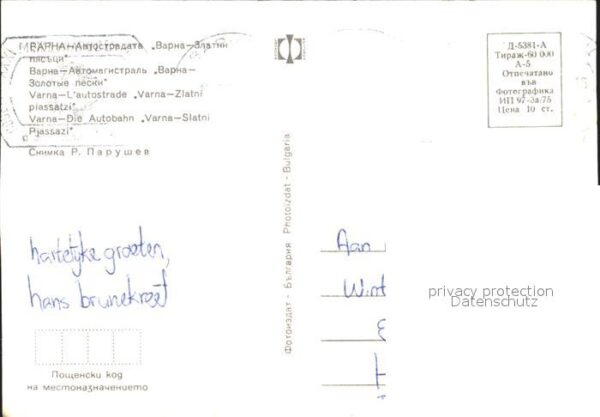 ВАРНА—Автострадата „Варна—Златни
пясъци"
Варна—Автомагистраль „Варна—
Золотые пески"
Varna—L'autostrade „Varna—Zlatni
piassatzi"
Varna—Die Autobahn „Varna—Slatni
Pjassazi"
Снимка Р. Парушев
Фотоиздат - България Photoizdat - Bulgaria
Д-5381-А
Тираж-60 000
А-5
Отпечатано
във
Фотографика
ИП 97-3а/75
Цена 10 ст.
hartelijke groeten,
hans brunekreet
Aan
privacy protection
Datenschutz
Пощенски код
на местоназначението